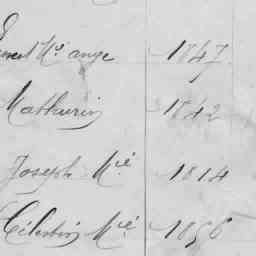 ange 1847
Mathurin 1842
Joseph Mié 1814
Célestin Mié 1856